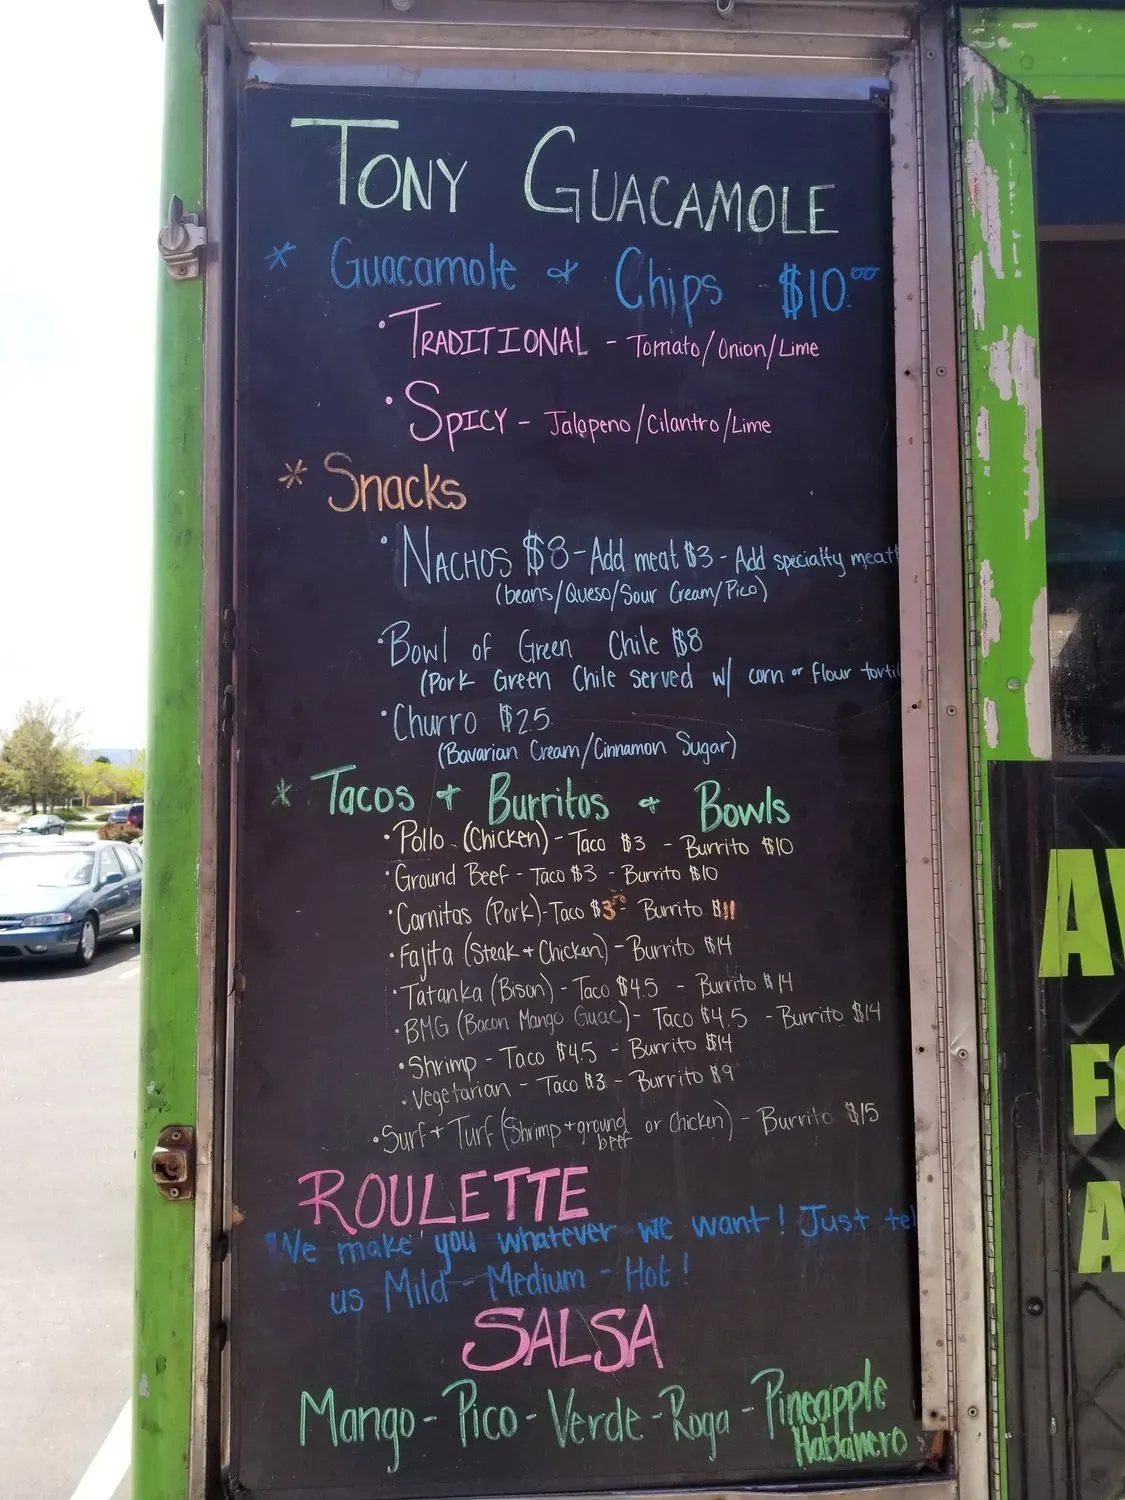 TONY GUACAMOLE
* Guacamole & Chips $10.00
• TRADITIONAL - Tomato/Onion/Lime
• SPICY - Jalapeno/Cilantro/Lime
* Snacks
• NACHOS $8 - Add meat $3 - Add specialty meat
(beans/Queso/Sour Cream/Pico)
• Bowl of Green Chile $8
(Pork Green Chile served w/ corn or flour torti
• Churro $2.5
(Bavarian Cream/Cinnamon Sugar)
* Tacos + Burritos & Bowls
• Pollo (Chicken) - Taco $3 - Burrito $10
• Ground Beef - Taco $3 - Burrito $10
• Carnitas (Pork) - Taco $3 - Burrito $11
• Fajita (Steak + Chicken) - Burrito $14
• Tatanka (Bison) - Taco $4.5 - Burrito $14
• BMG (Bacon Mango Guac) - Taco $4.5 - Burrito $14
• Shrimp - Taco $4.5 - Burrito $14
• Vegetarian - Taco $3 - Burrito $9
• Surf + Turf (Shrimp + ground beef or Chicken) - Burrito $15
ROULETTE
We make you whatever we want! Just tel
us Mild - Medium - Hot!
SALSA
Mango - Pico - Verde - Roga - Pineapple
Habanero
A
F
A